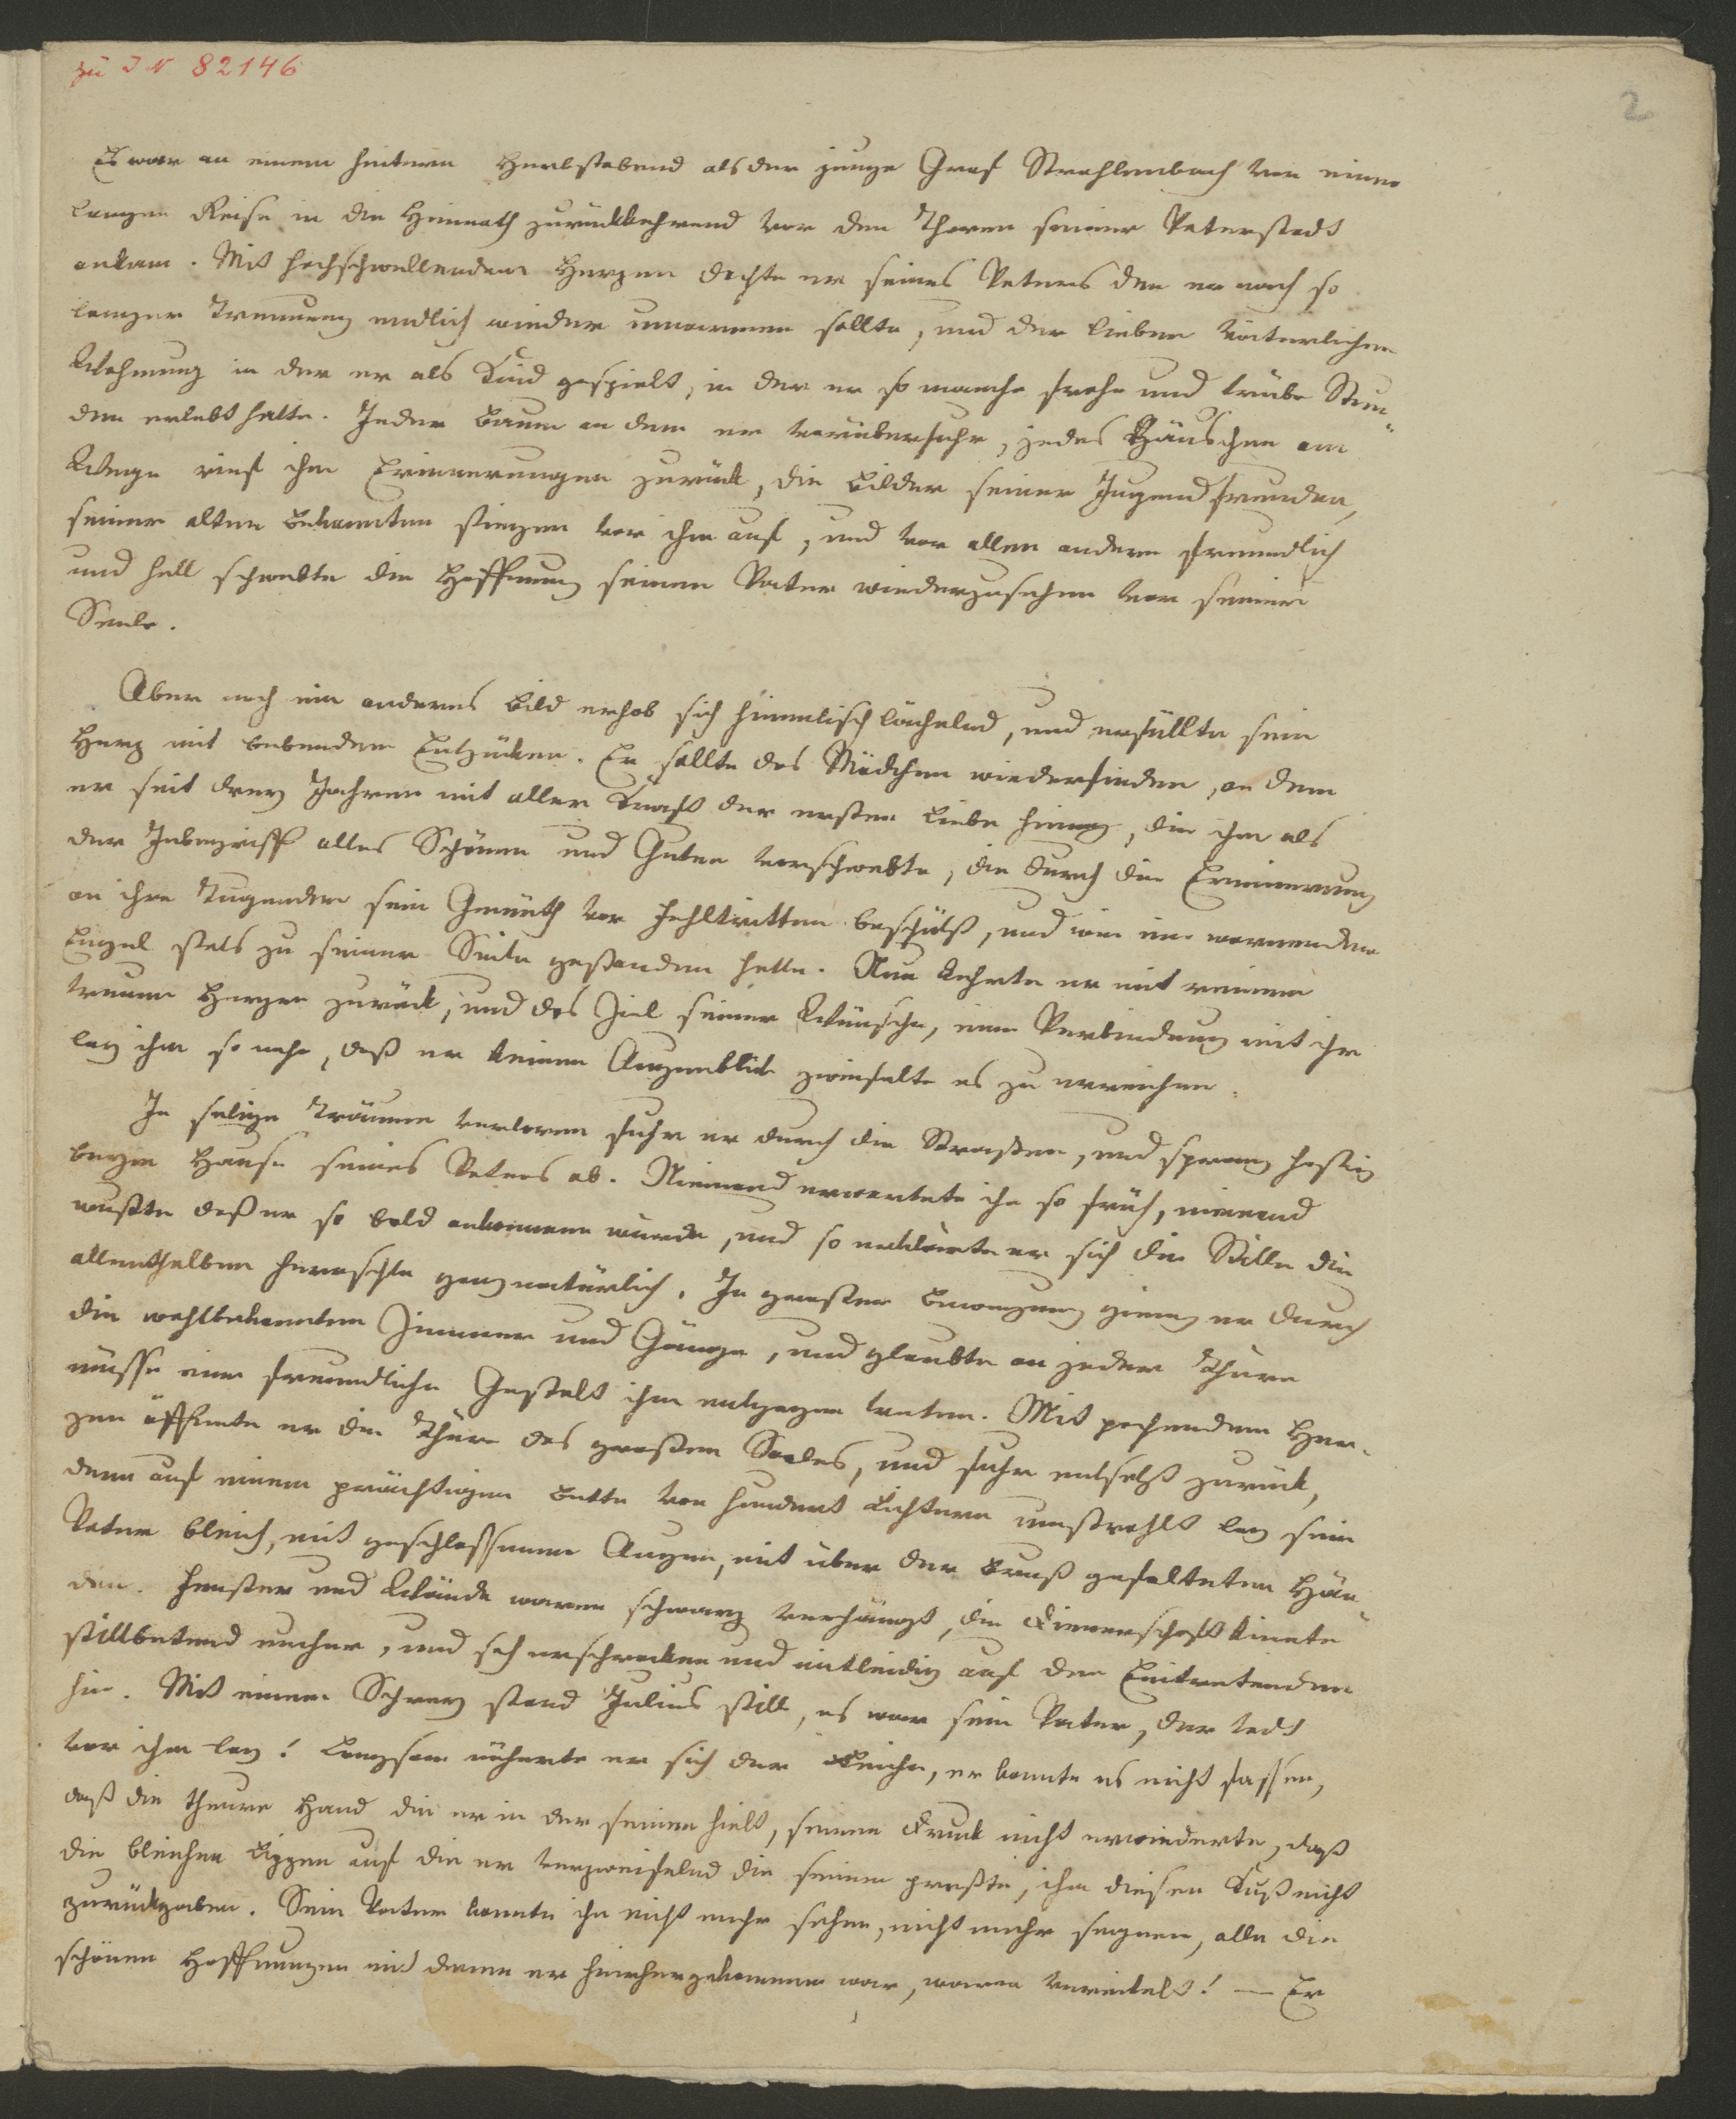 zu I N 82146
2
Es war an einem heitern Herbstabend als der junge Graf Strahlenbach von einer
langen Reise in die Heimath zurückkehrend vor den Thoren seiner Vaterstadt
ankam. Mit hochschwellendem Herzen dachte er seines Vaters den er nach so
langer Trennung endlich wieder umarmen sollte, und der lieben väterlichen
Wohnung in der er als Kind gespielt, in der er so manche frohe und trübe Stun-
den erlebt hatte. Jeder Baum an dem er vorüberfuhr, jedes Häuschen am
Wege rief ihm Erinnerungen zurück, die Bilder seiner Jugendfreunden,
seiner alten Bekannten stiegen vor ihm auf, und vor allen andern freundlich
und hell schwebte die Hoffnung seinen Vater wiederzusehen vor seiner
Seele.
Aber noch ein anderes Bild erhob sich himmlisch lächelnd, und erfüllte sein
Herz mit bebendem Entzücken. Er sollte das Mädchen wiederfinden, an dem
er seit drey Jahren mit aller Kraft der ersten Liebe hieng, die ihm als
der Inbegriff alles Schönen und Guten vorschwebte, die durch die Erinnerung
an ihre Tugenden sein Gemüth vor Fehltritten beschützt, und wie ein warnender
Engel stets zu seiner Seite gestanden hatte. Nun kehrte er mit reinem
treuem Herzen zurück, und das Ziel seiner Wünsche, eine Verbindung mit ihr
lag ihm so nahe, daß er keinen Augenblick zweifelte es zu erreichen.
In selige Träume verloren fuhr er durch die Strassen, und sprang hastig
beym Hause seines Vaters ab. Niemand erwartete ihn so früh, niemand
wußte daß er so bald ankommen würde, und so erklärte er sich die Stille die
allenthalben herrschte ganz natürlich. In großer Bewegung gieng er durch
die wohlbekannten Zimmer und Gänge, und glaubte an jeder Thüre
müsse eine freundliche Gestalt ihm entgegen treten. Mit pochendem Her-
zen öffnete er die Thüre des großen Saales, und fuhr entsetzt zurück,
denn auf einem prächtigen Bette von hundert Lichtern umstrahlt lag sein
Vater bleich, mit geschlossenen Augen, mit über der Brust gefalteten Hän-
den. Fenster und Wände waren schwarz verhängt, die Dienerschaft kniete
stillbetend umher, und sah erschrocken und mitleidig auf den Eintretenden
hin. Mit einem Schrey stand Julius still, es war sein Vater, der todt
vor ihm lag! Langsam näherte er sich der Leiche, er konnte es nicht fassen,
daß die theure Hand die er in der seinen hielt, seinen Druck nicht erwiederte, daß
die bleichen Lippen auf die er verzweifelnd die seinen preßte, ihm diesen Kuß nicht
zurückgaben. Sein Vater konnte ihn nicht mehr sehen, nicht mehr segnen, alle die
schönen Hoffnungen mit denen er hierhergekommen war, waren vereitelt! — Er